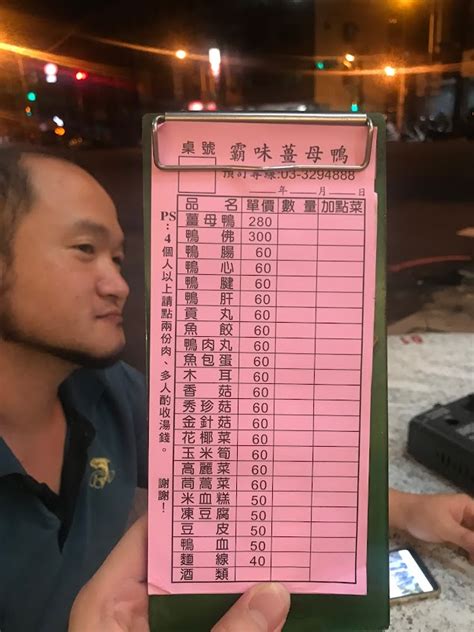 桌號
霸味薑母鴨
預訂專線:03-3294888
年 月 日
品名 單價 數量 加點菜
薑母鴨 280
鴨佛 300
鴨腸 60
鴨心 60
鴨腱 60
鴨肝 60
貢丸 60
魚餃 60
鴨肉丸 60
魚包蛋 60
木耳 60
香菇 60
秀珍菇 60
金針菇 60
花椰菜 60
玉米筍 60
高麗菜 60
茼蒿菜 60
米血糕 50
凍豆腐 50
豆皮 50
鴨血 50
麵線 40
酒類
PS:4個人以上請點兩份肉、多人酌收湯錢。 謝謝!